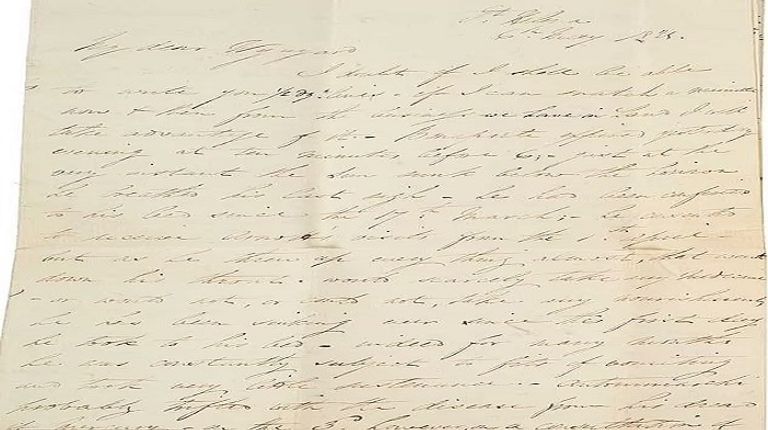 St Helena
6th May 1821.
My dear
I doubt if I shall be able
to write you lines - if I can snatch a minute
now & then from the business we have in hand I will
take advantage of it - Bonaparte expired yesterday
evening at ten minutes before 6, - just at the
very instant the Sun sunk below the horizon
he breathed his last sigh - he had been confined
to his bed since the 17th March; - he consented
to receive Arnott's visits from the 1st April
but as he threw up every thing almost, that went
down his throat - would scarcely take any medicine
- or would not, or could not, take any nourishment
he has been sinking ever since the first day
he took to his bed - indeed for many months
he was constantly subject to fits of vomiting
and took very little sustenance - Antommarchi
probably with the disease from his
mercury - on the 3d however, at a consultation of